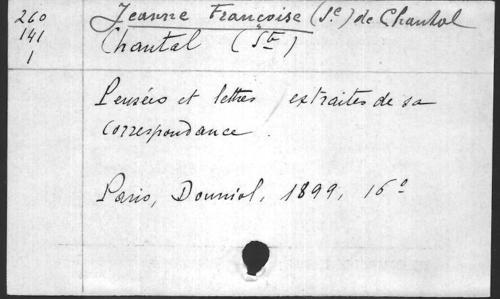 260 Jeanne Françoise (Se) de Chantal
141 Chantal (Ste)
1
Pensées et lettres extraites de sa
correspondance.
Paris, Douniol, 1899, 16o